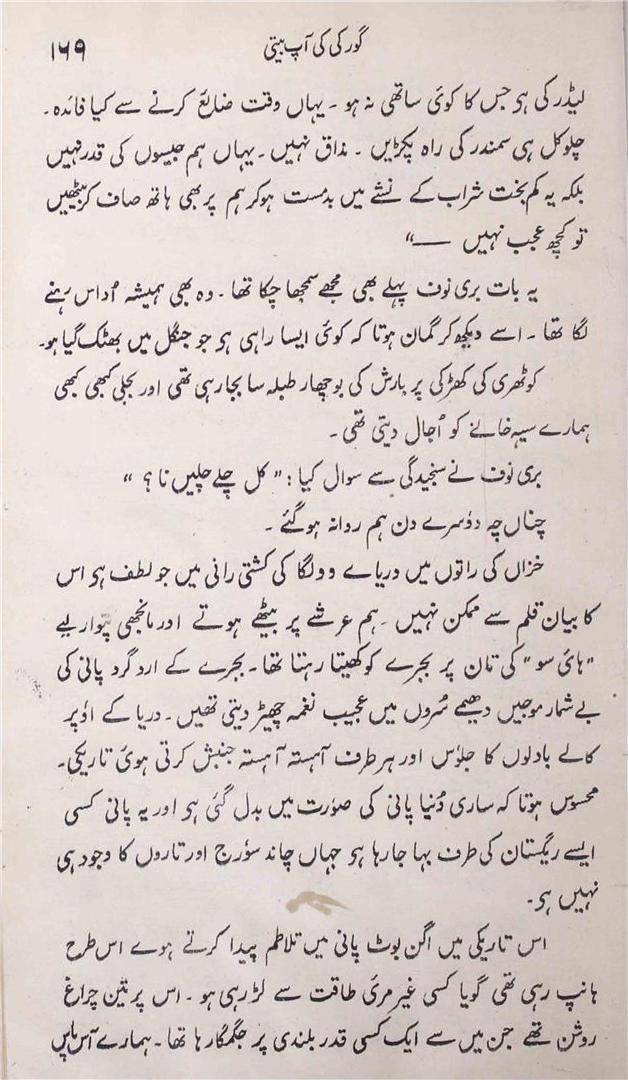 گورکی کی آپ بیتی
۱۶۹
لیڈر کی ہو جس کا کوئی ساتھی نہ ہو ۔ یہاں وقت ضائع کرنے سے کیا فائدہ ۔
چلو کل ہی سمندر کی راہ پکڑیں ۔ مذاق نہیں ۔ یہاں ہم جیسوں کی قدر نہیں
بلکہ یہ کم بخت شراب کے نشے میں بدمست ہوکر ہم پر بھی ہاتھ صاف کر بیٹھیں
تو کچھ عجب نہیں ——“
یہ بات بری نوف پہلے بھی مجھے سمجھا چکا تھا ۔ وہ بھی ہمیشہ اُداس رہنے
لگا تھا ۔ اسے دیکھ کر گمان ہوتا کہ کوئی ایسا راہی ہو جو جنگل میں بھٹک گیا ہو۔
کوٹھری کی کھڑکی پر بارش کی بوچھار طبلہ سا بجا رہی تھی اور بجلی کبھی کبھی
ہمارے سیہ خانے کو اُجال دیتی تھی ۔
بری نوف نے سنجیدگی سے سوال کیا : ” کل چلے چلیں نا ؟ “
چناں چہ دوٗسرے دن ہم روانہ ہوگئے ۔
خزاں کی راتوں میں دریاے وولگا کی کشتی رانی میں جو لطف ہو اس
کا بیان قلم سے ممکن نہیں ۔ ہم عرشے پر بیٹھے ہوتے اور مانجھی پتوار لیے
”ہائی سو“ کی تان پر بجرے کو کھیتا رہتا تھا ۔ بجرے کے ارد گرد پانی کی
بے شمار موجیں دھیمے سُروں میں عجیب نغمہ چھیڑ دیتی تھیں ۔ دریا کے اوٗپر
کالے بادلوں کا جلوٗس اور ہر طرف آہستہ آہستہ جنبش کرتی ہوئی تاریکی ۔
محسوس ہوتا کہ ساری دُنیا پانی کی صوٗرت میں بدل گئی ہو اور یہ پانی کسی
ایسے ریگستان کی طرف بہا جا رہا ہو جہاں چاند سوٗرج اور تاروں کا وجود ہی
نہیں ہو۔
اس تاریکی میں اگن بوٹ پانی میں تلاطم پیدا کرتے ہوے اس طرح
ہانپ رہی تھی گویا کسی غیر مرئی طاقت سے لڑ رہی ہو ۔ اس پر تین چراغ
روشن تھے جن میں سے ایک کسی قدر بلندی پر جگمگا رہا تھا ۔ ہمارے آس پاس